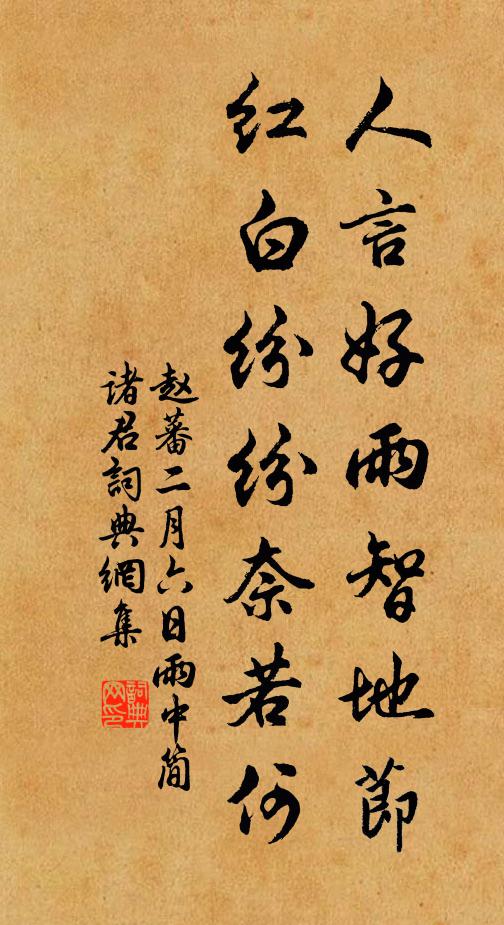 人言好雨智地節
紅白纷纷奈若何
赵蕃二月六日雨中简
诸君詞典網集
詞典网印